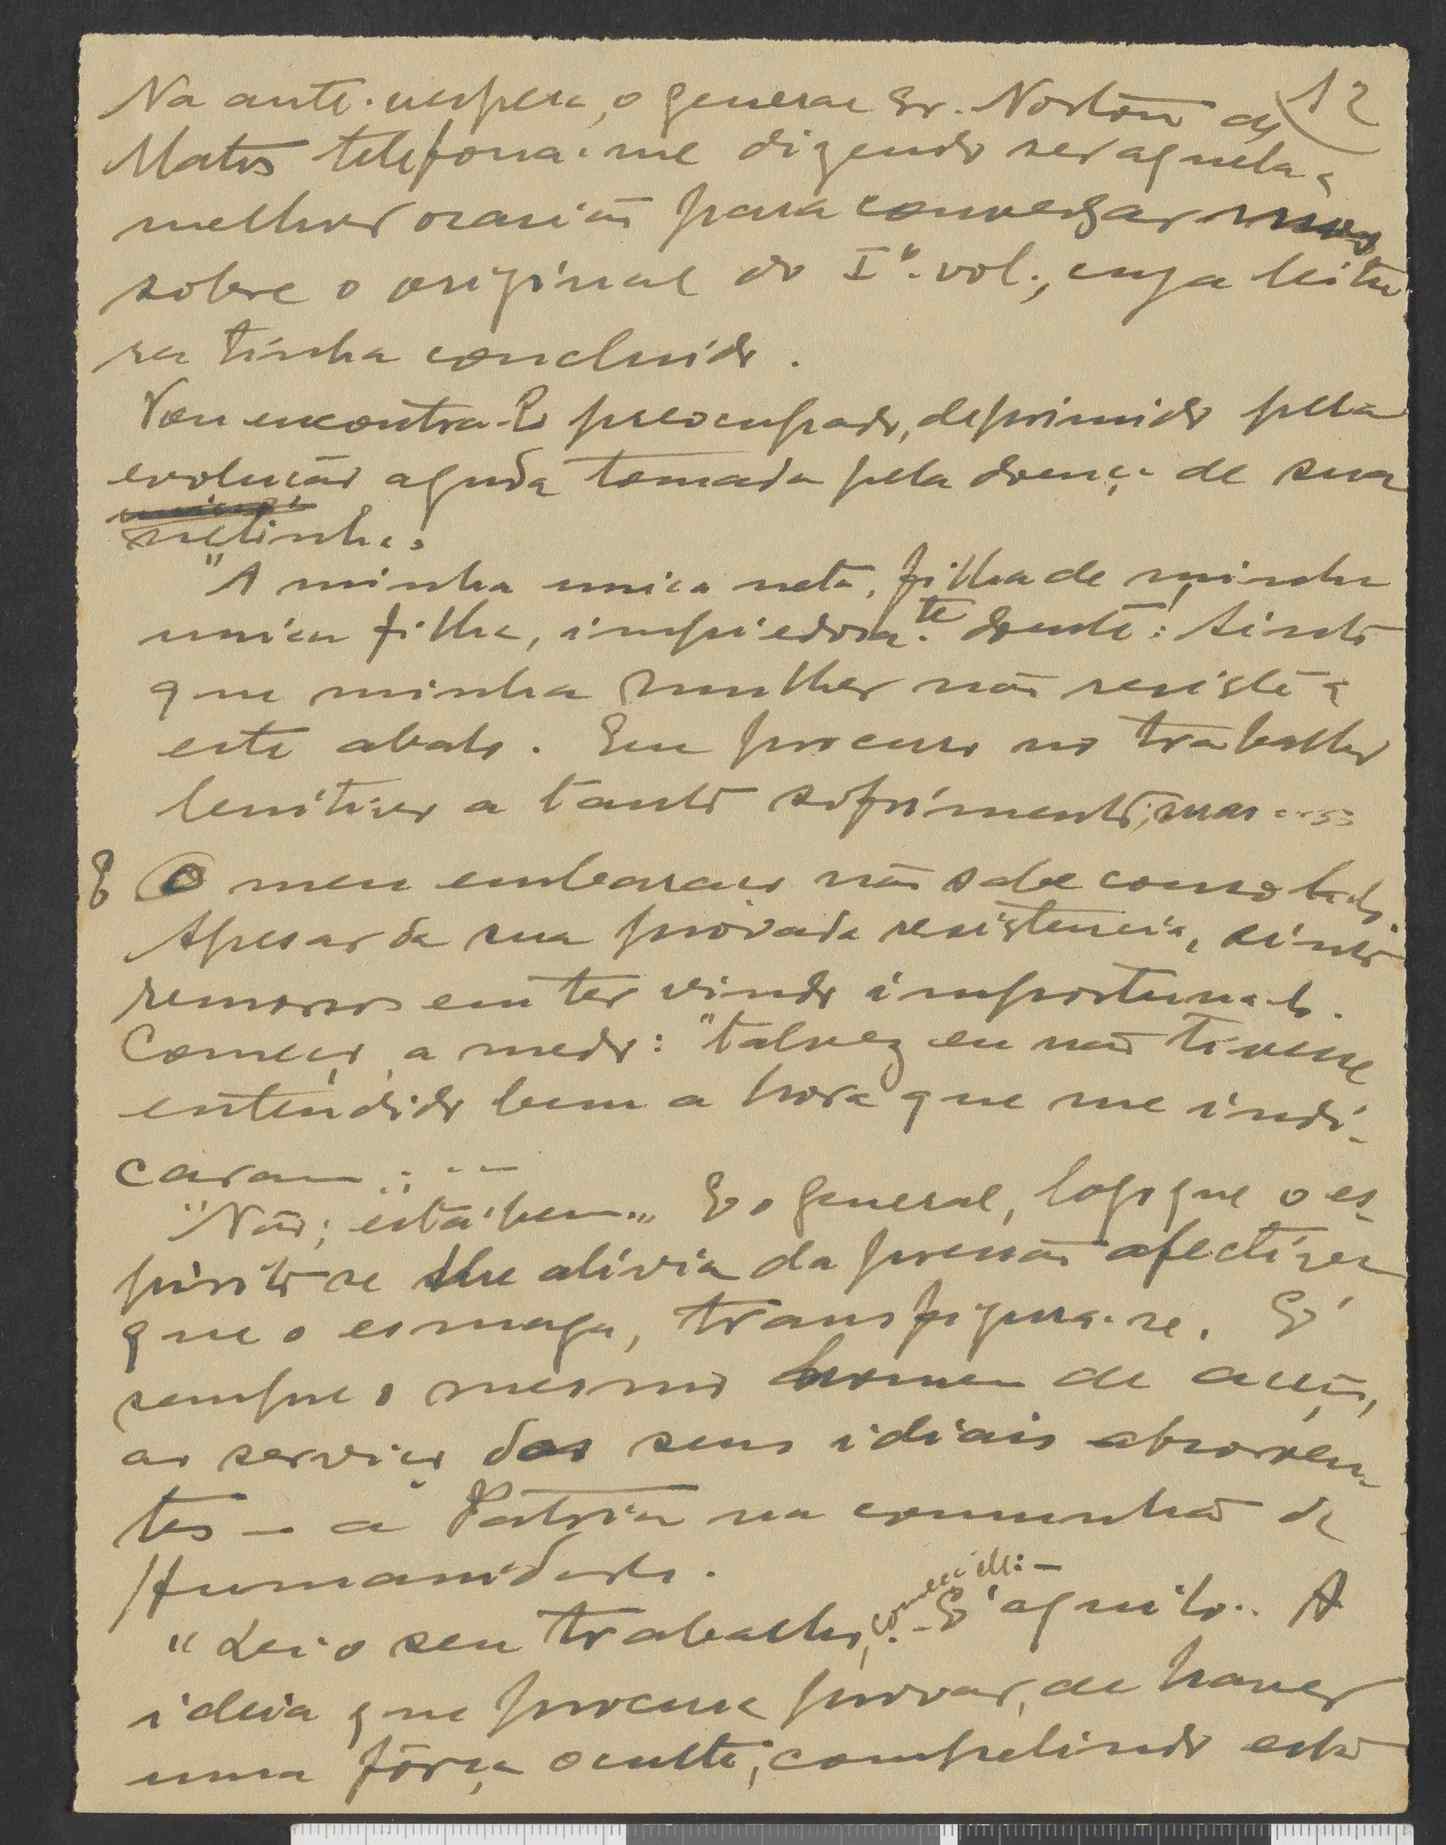 12
Na ante-vespera, o general Sr. Norton de
Matos telefona-me dizendo ser aquela a
melhor ocasião para conversarmos
sobre o original do Iº. vol., cuja leitu
ra tinha concluido.
Vou encontra-lo preocupado, deprimido pela
evolução aguda tomada pela doença de sua
netinha.
"A minha unica neta, filha de minha
unica filha, impiedosa.te doente! Sinto
que minha mulher não resiste a
este abalo. Eu procuro no trabalho
lenitivo a tanto sofrimento, mas ....
O meu embaraço não sabe consola-lo.
Apesar da sua provada resistencia, sinto
remorsos em ter vindo importuna-lo.
Começo, a medo: "talvez eu não tivesse
entendido bem a hora que me indi-
caram...
"Não; está bem". E o general, logo que o es-
pirito se lhe alivia da pressão afectiva
que o esmaga, transfigura-se. E'
sempre o mesmo homem de acção,
ao serviço dos seus idiais absorven-
tes — a Patria na comunhão da
Humanidade.
"Lei o seu trabalho, - E' aquilo.. A
ideia que procura provar, de haver
uma fôrça oculta, compelindo esta